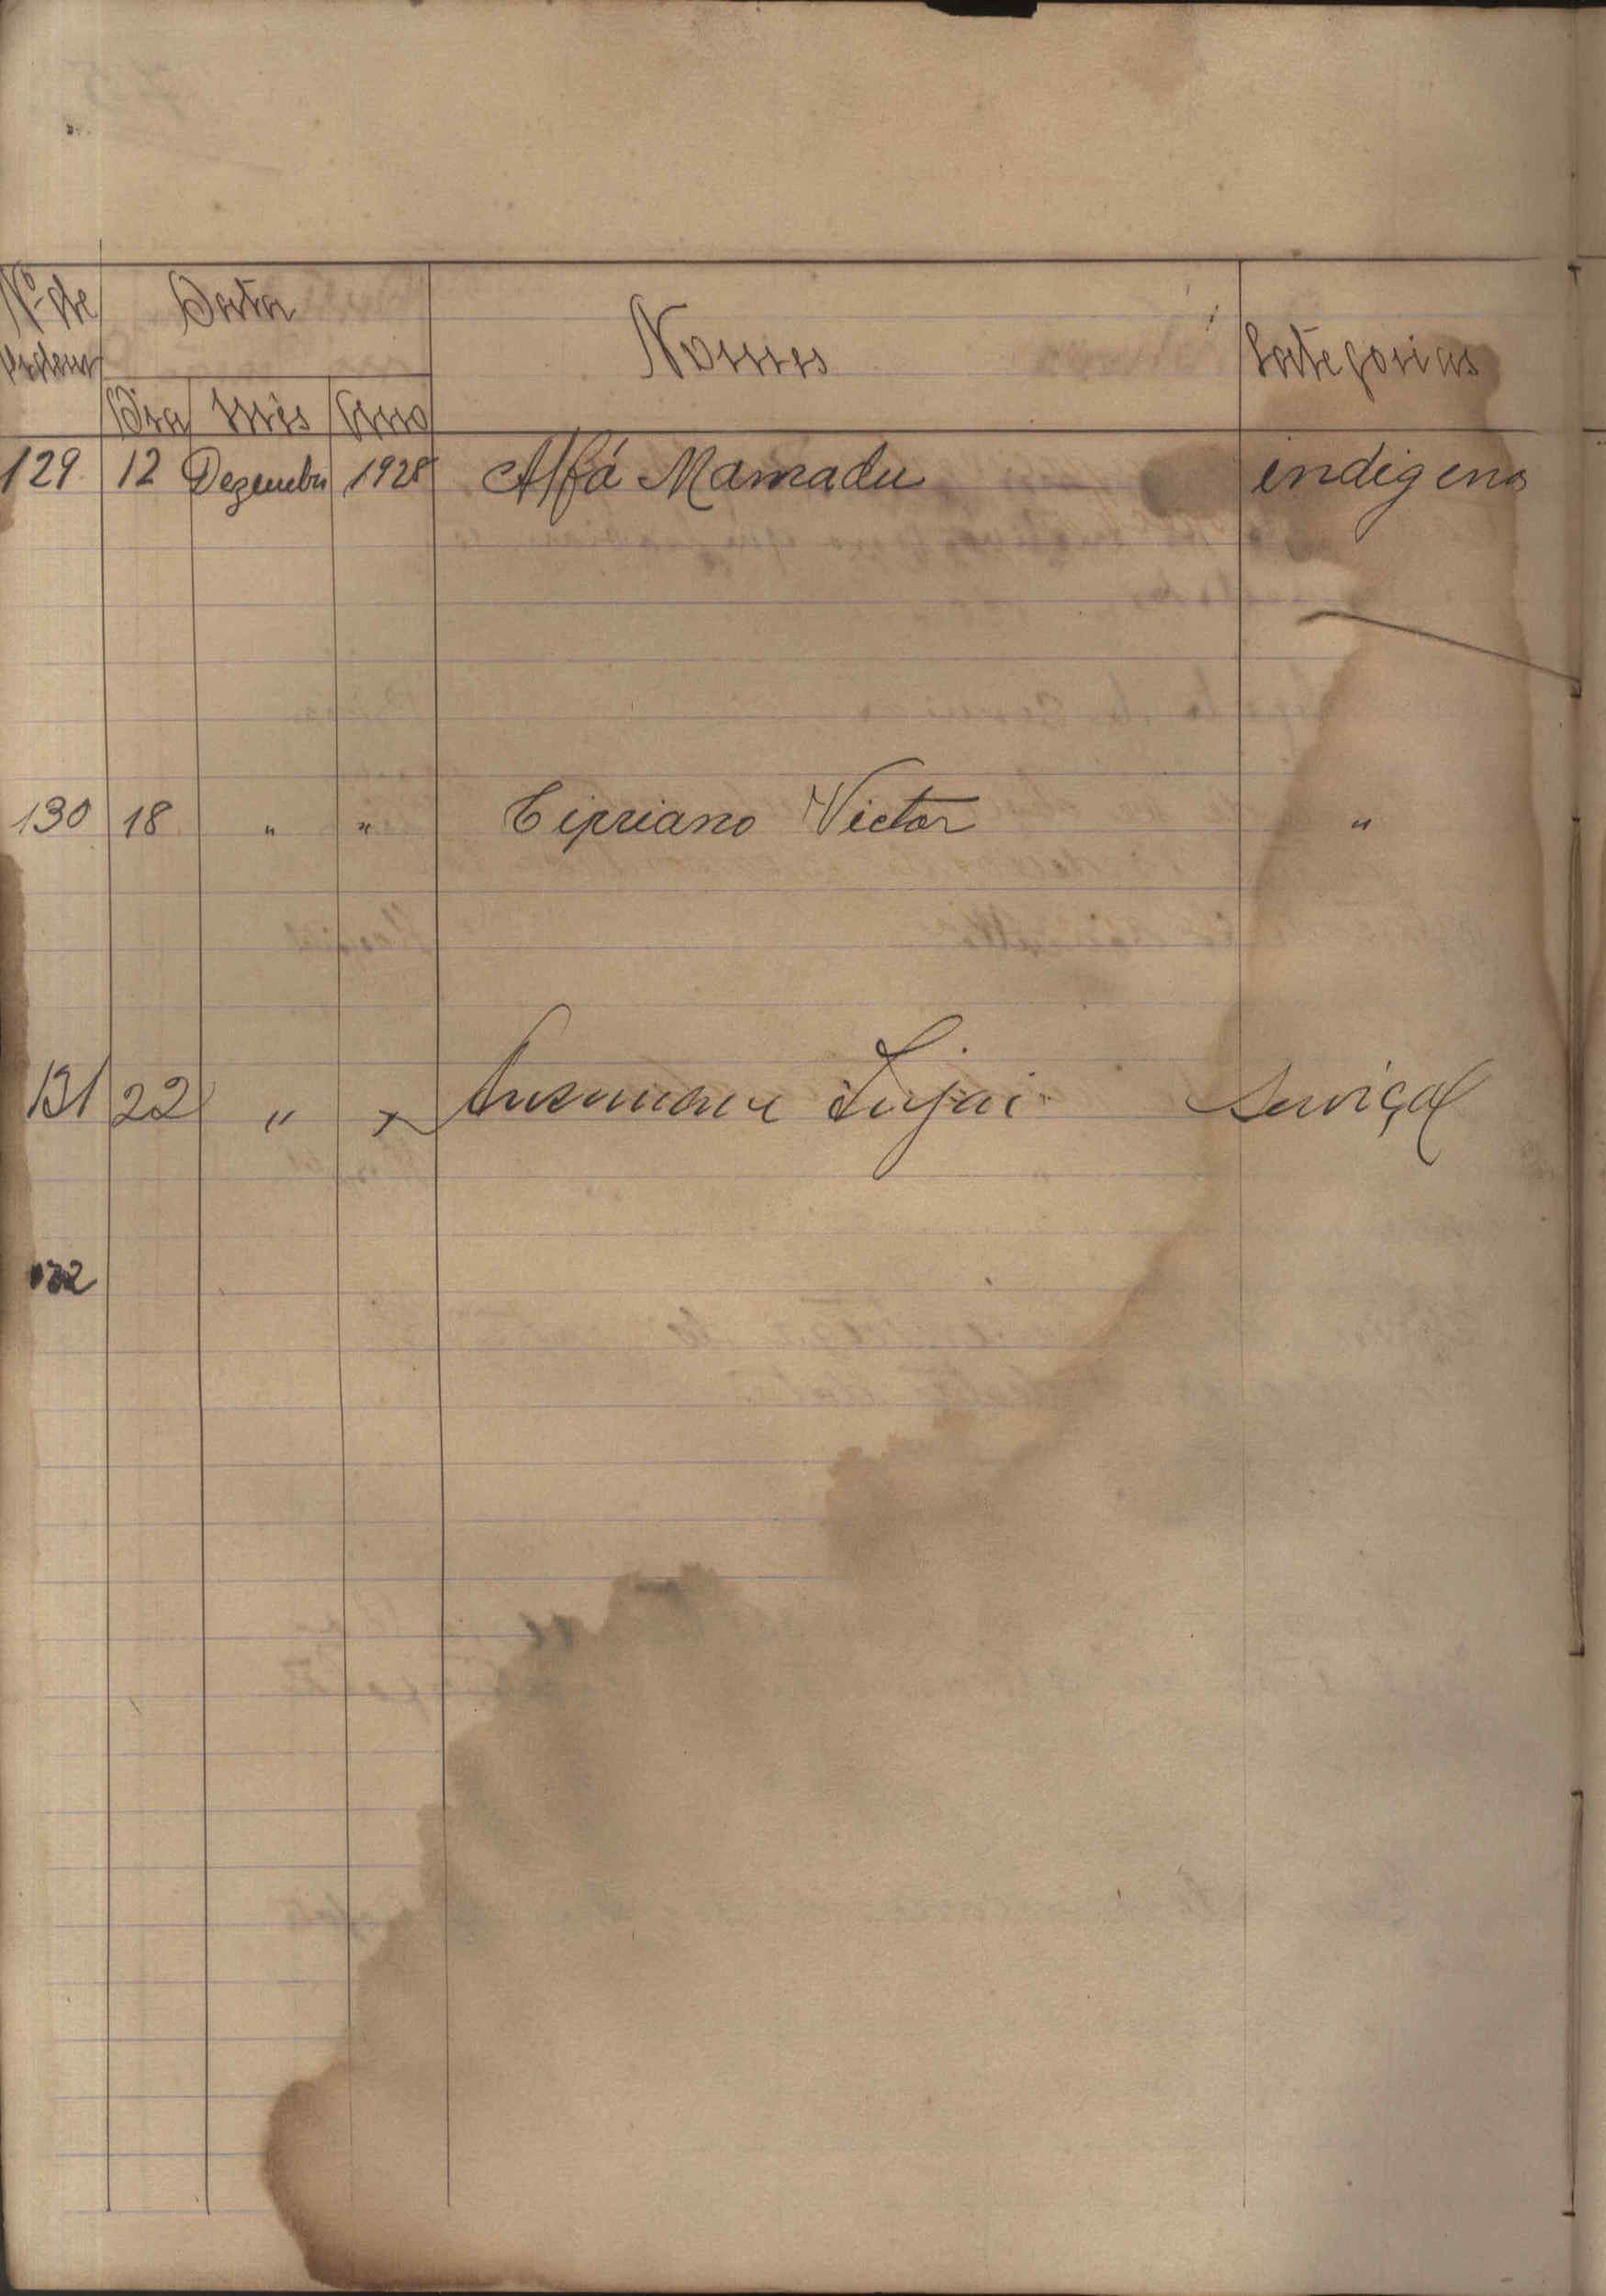 Nº de Data Nomes Categorias
Ordem
Dia Mês Ano
129 12 Dezembro 1928 Alfá Mamadu indigena
130 18 " " Cipriano Victor "
131 22 " " Ansumane Injai serviçal
132